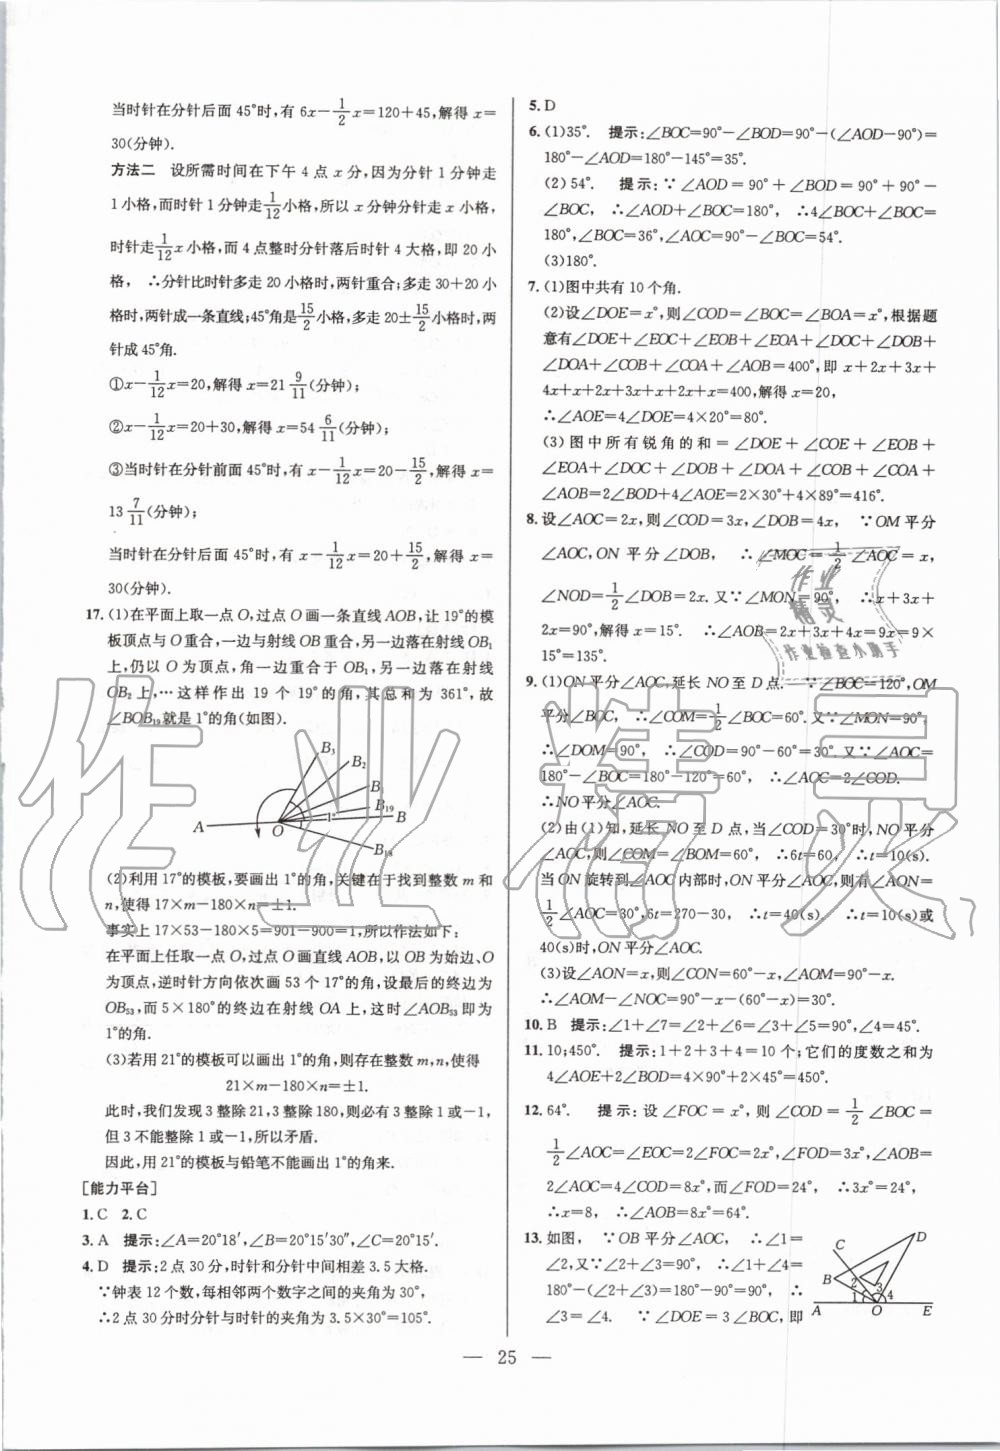 当时针在分针后面 45°时,有 6x－1/2x＝120＋45,解得 x＝
30(分钟).
方法二　设所需时间在下午 4 点 x 分,因为分针 1 分钟走
1 小格,而时针 1 分钟走1/12小格,所以 x 分钟分针走 x 小格,
时针走1/12x 小格,而 4 点整时分针落后时针 4 大格,即 20 小
格，∴分针比时针多走 20 小格时,两针重合;多走 30＋20 小
格时,两针成一条直线;45°角是15/2小格,多走 20±15/2小格时,两
针成 45°角.
①x－1/12x＝20,解得 x＝21 9/11(分钟);
②x－1/12x＝20＋30,解得 x＝54 6/11(分钟);
③当时针在分针前面 45°时,有 x－1/12x＝20－15/2,解得 x＝
13 7/11(分钟);
当时针在分针后面 45°时,有 x－1/12x＝20＋15/2,解得 x＝
30(分钟).
17. (1)在平面上取一点 O,过点 O 画一条直线 AOB,让 19°的模
板顶点与 O 重合,一边与射线 OB 重合,另一边落在射线 OB₁
上,仍以 O 为顶点,角一边重合于 OB₁,另一边落在射线
OB₂ 上,…这样作出 19 个 19°的角,其总和为 361°,故
∠BOB₁₉就是 1°的角(如图).
B₃
B₂
B₁
B₁₉
A O 1° B
B₁₈
(2)利用 17°的模板,要画出 1°的角,关键在于找到整数 m 和
n,使得 17×m－180×n＝±1.
事实上 17×53－180×5＝901－900＝1,所以作法如下：
在平面上任取一点 O,过点 O 画直线 AOB,以 OB 为始边、O
为顶点,逆时针方向依次画 53 个 17°的角,设最后的终边为
OB₅₃,而 5×180°的终边在射线 OA 上,这时∠AOB₅₃即为
1°的角.
(3)若用 21°的模板可以画出 1°的角,则存在整数 m,n,使得
21×m－180×n＝±1.
此时,我们发现 3 整除 21,3 整除 180,则必有 3 整除 1 或－1,
但 3 不能整除 1 或－1,所以矛盾.
因此,用 21°的模板与铅笔不能画出 1°的角来.
[能力平台]
1. C 2. C
3. A 提示:∠A＝20°18′,∠B＝20°15′30″,∠C＝20°15′.
4. D 提示:2 点 30 分,时针和分针中间相差 3.5 大格.
∵钟表 12 个数,每相邻两个数字之间的夹角为 30°,
∴2 点 30 分时分针与时针的夹角为 3.5×30°＝105°.
5. D
6. (1)35°. 提示:∠BOC＝90°－∠BOD＝90°－(∠AOD－90°)＝
180°－∠AOD＝180°－145°＝35°.
(2) 54°. 提示:∵∠AOD＝90°＋∠BOD＝90°＋90°－
∠BOC, ∴∠AOD＋∠BOC＝180°, ∴4∠BOC＋∠BOC＝
180°,∠BOC＝36°,∠AOC＝90°－∠BOC＝54°.
(3)180°.
7. (1)图中共有 10 个角.
(2)设∠DOE＝x°,则∠COD＝∠BOC＝∠BOA＝x°,根据题
意有∠DOE＋∠EOC＋∠EOB＋∠EOA＋∠DOC＋∠DOB＋
∠DOA＋∠COB＋∠COA＋∠AOB＝400°,即 x＋2x＋3x＋
4x＋x＋2x＋3x＋x＋2x＋x＝400,解得 x＝20,
∴∠AOE＝4∠DOE＝4×20°＝80°.
(3)图中所有锐角的和＝∠DOE＋∠COE＋∠EOB＋
∠EOA＋∠DOC＋∠DOB＋∠DOA＋∠COB＋∠COA＋
∠AOB＝2∠BOD＋4∠AOE＝2×30°＋4×89°＝416°.
8. 设∠AOC＝2x,则∠COD＝3x,∠DOB＝4x, ∵OM 平分
∠AOC,ON 平分∠DOB, ∴∠MOC＝1/2∠AOC＝x,
∠NOD＝1/2∠DOB＝2x. 又∵∠MON＝90°, ∴x＋3x＋
2x＝90°,解得 x＝15°. ∴∠AOB＝2x＋3x＋4x＝9x＝9×
15°＝135°.
9. (1)ON 平分∠AOC,延长 NO 至 D 点. ∵∠BOC＝120°,OM
平分∠BOC, ∴∠COM＝1/2∠BOC＝60°. 又∵∠MON＝90°,
∴∠DOM＝90°, ∴∠COD＝90°－60°＝30°. 又∵∠AOC＝
180°－∠BOC＝180°－120°＝60°, ∴∠AOC＝2∠COD.
∴NO 平分∠AOC.
(2)由(1)知,延长 NO 至 D 点,当∠COD＝30°时,NO 平分
∠AOC,则∠COM＝∠BOM＝60°, ∴6t＝60, ∴t＝10(s).
当 ON 旋转到∠AOC 内部时,ON 平分∠AOC,则有∠AON＝
1/2∠AOC＝30°,6t＝270－30, ∴t＝40(s), ∴t＝10(s)或
40(s)时,ON 平分∠AOC.
(3)设∠AON＝x,则∠CON＝60°－x,∠AOM＝90°－x.
∴∠AOM－∠NOC＝90°－x－(60°－x)＝30°.
10. B 提示:∠1＋∠7＝∠2＋∠6＝∠3＋∠5＝90°,∠4＝45°.
11. 10;450°. 提示:1＋2＋3＋4＝10 个;它们的度数之和为
4∠AOE＋2∠BOD＝4×90°＋2×45°＝450°.
12. 64°. 提示:设∠FOC＝x°,则∠COD＝1/2∠BOC＝
1/2∠AOC＝∠EOC＝2∠FOC＝2x°,∠FOD＝3x°,∠AOB＝
2∠AOC＝4∠COD＝8x°,而∠FOD＝24°, ∴3x°＝24°,
∴x＝8, ∴∠AOB＝8x°＝64°.
13. 如图, ∵OB 平分∠AOC, ∴∠1＝
∠2,又∵∠2＋∠3＝90°, ∴∠1＋∠4＝
180°－(∠2＋∠3)＝180°－90°＝90°, ∴
∠3＝∠4. ∵∠DOE＝∠BOC,即
C D
B 2 3
1 4
A O E
— 25 —
作业精灵
作业
精灵
作业检查小助手